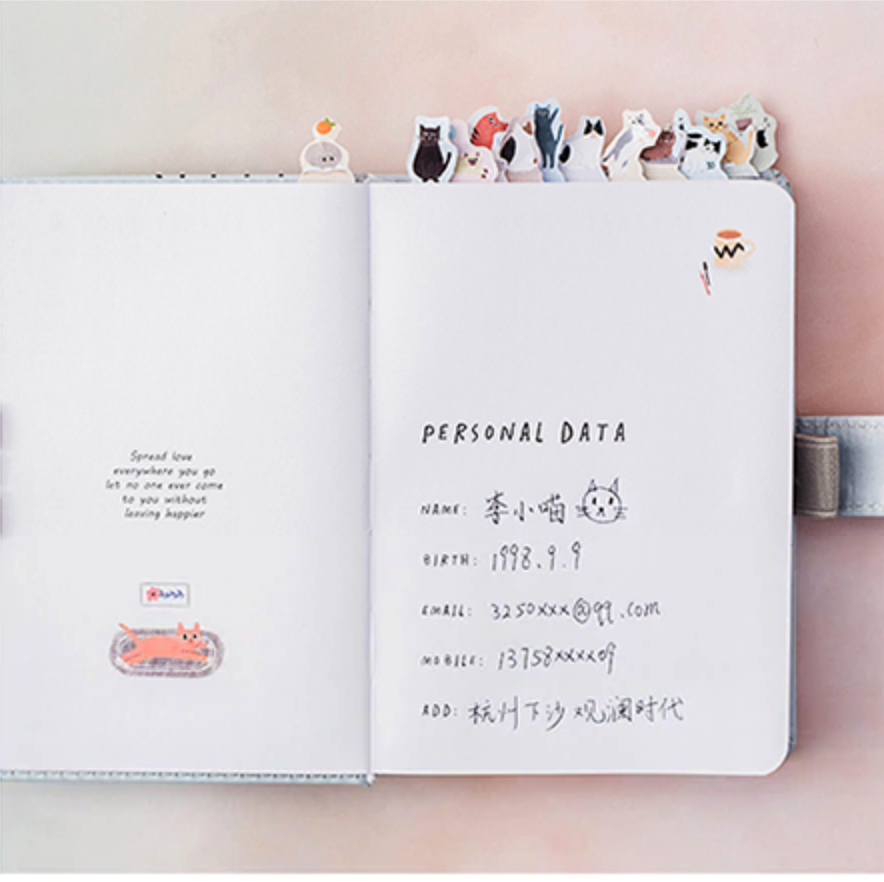 Spread love
everywhere you go
let no one ever come
to you without
leaving happier
PERSONAL DATA
NAME: 李小喵
BIRTH: 1998.9.9
EMAIL: 3250xxx@qq.com
MOBILE: 13758xxxx09
ADD: 杭州下沙观澜时代